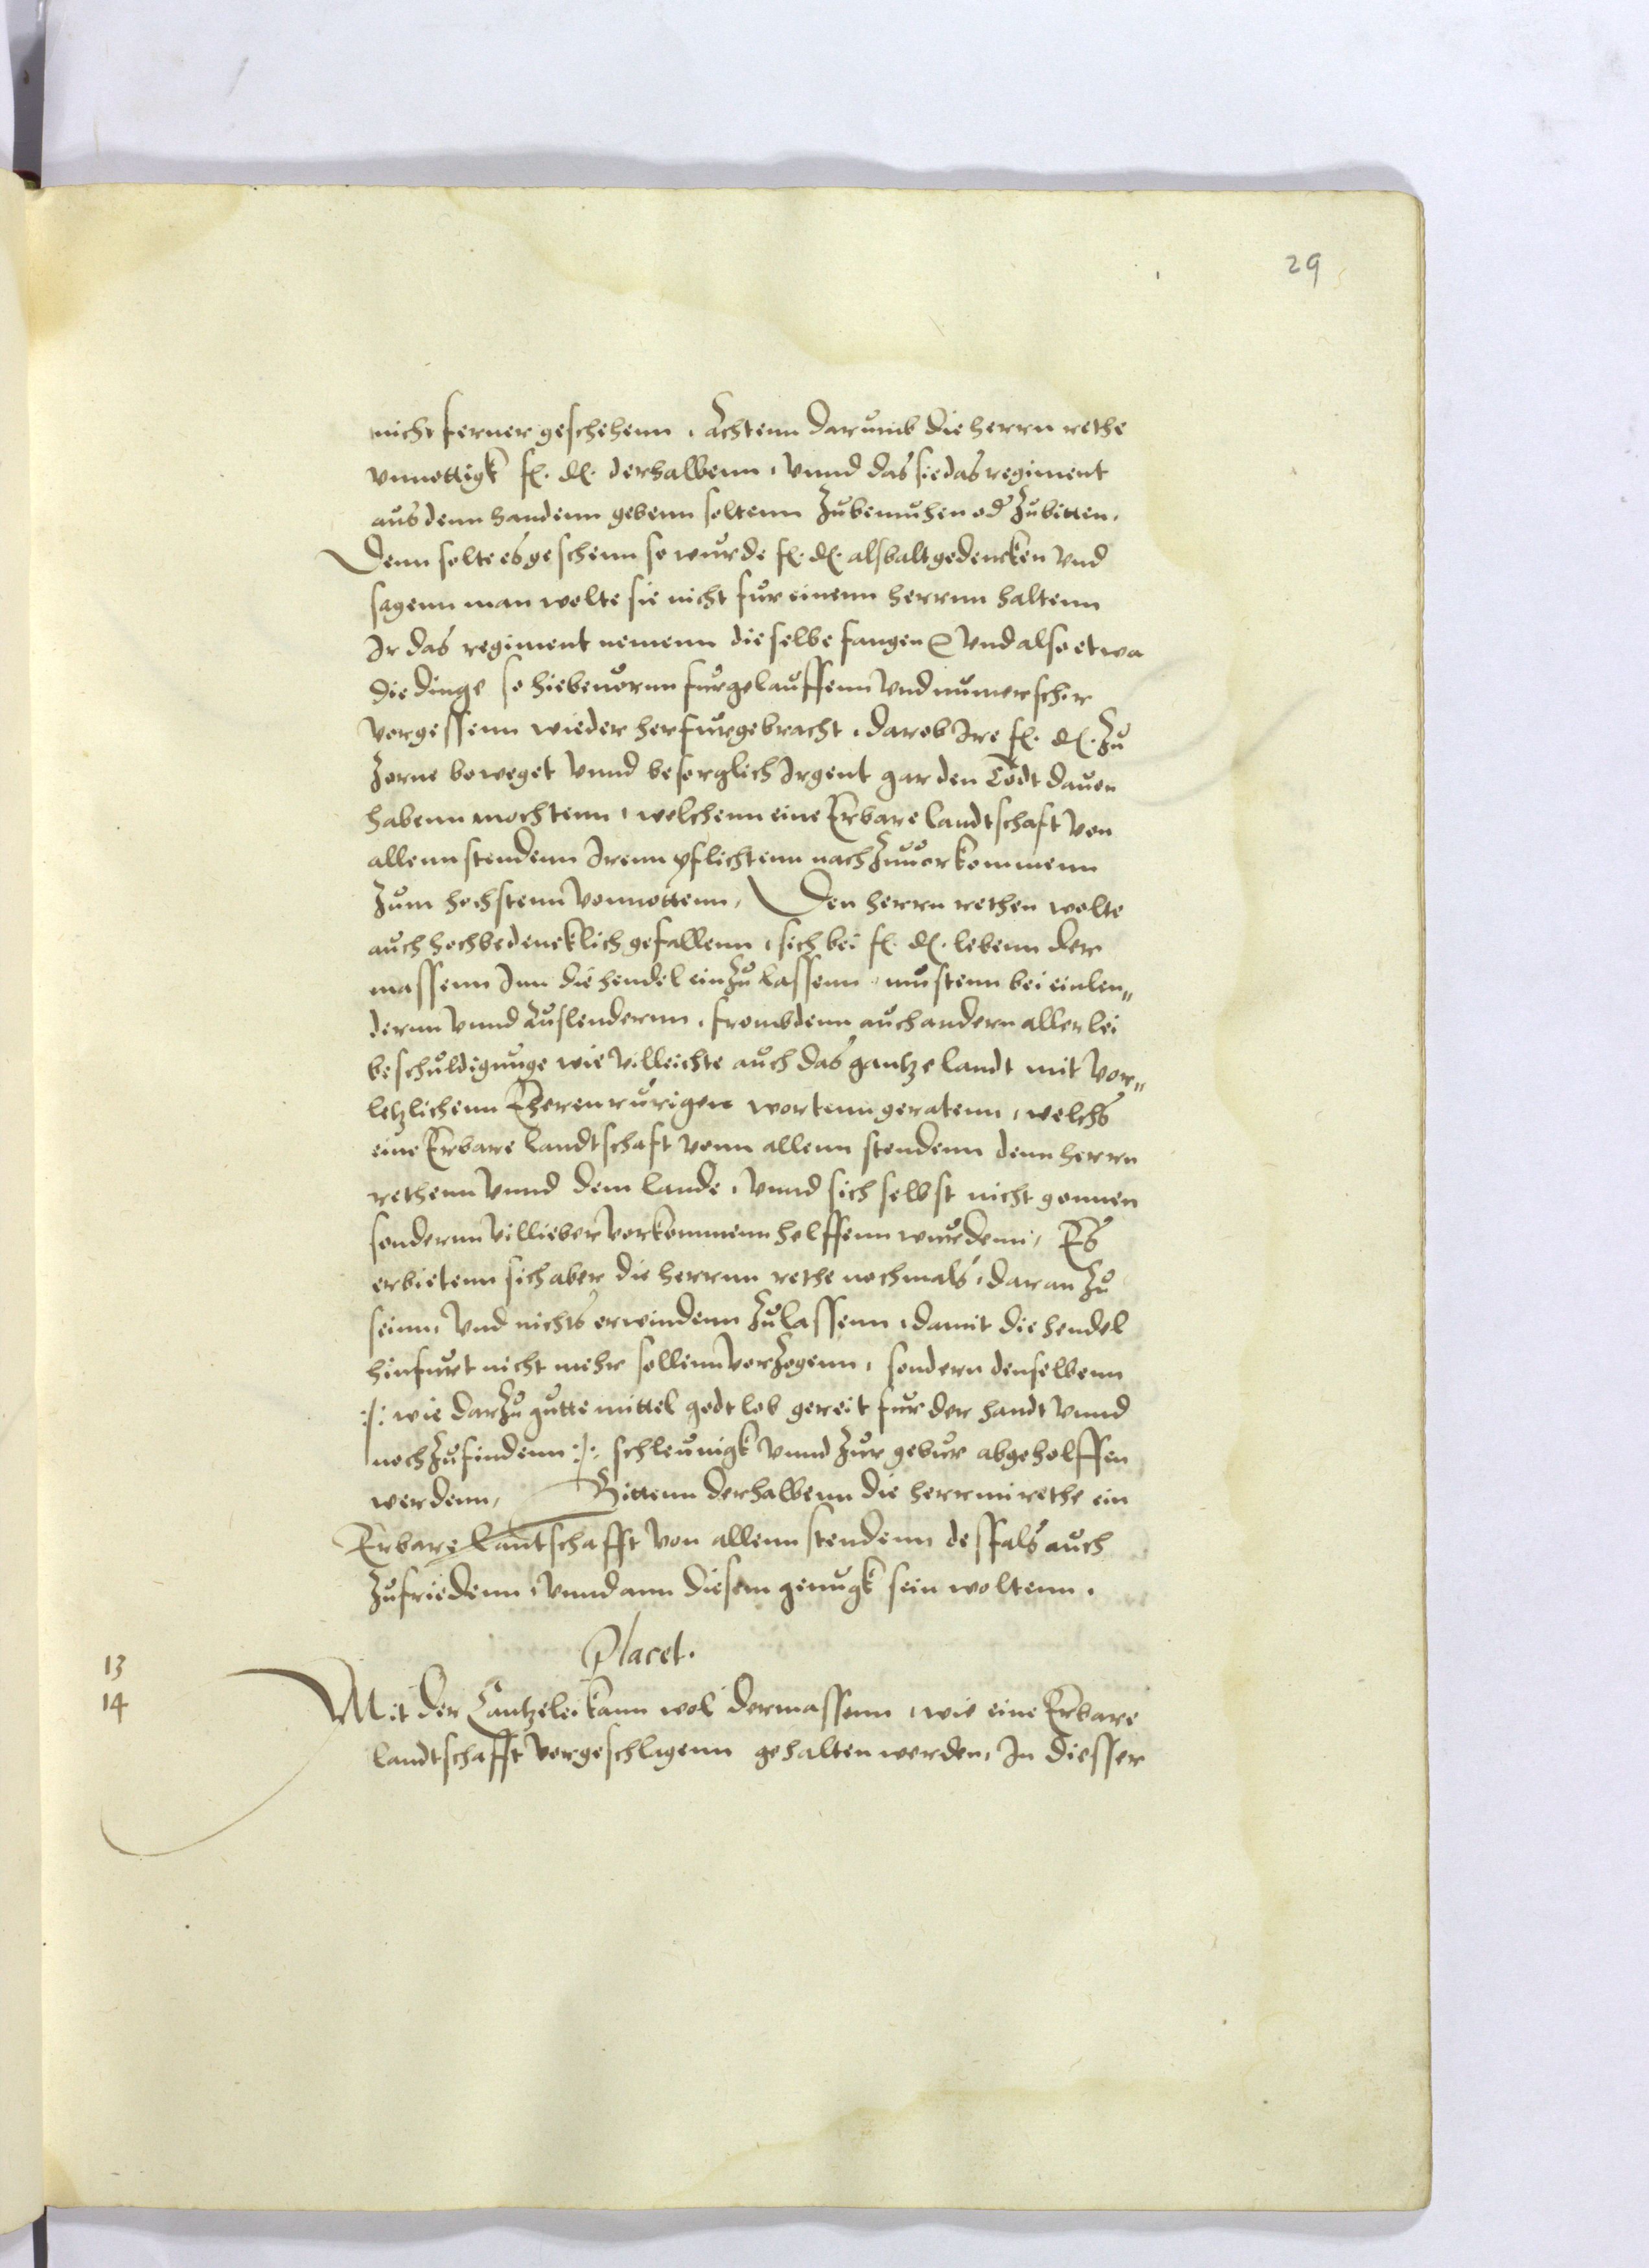 29
nicht ferner geschehenn, Achtenn darumb die herrn rethe
unnottigk f. d. derhalbenn, unnd das sie das regiment
aus denn handenn gebenn soltenn zubemuhen od zubitten,
Denn solte es geschenn so wurde f. d. alsbalt gedencken und
sagenn man wolte sie nicht fur einenn herrnn haltenn
Ir das regiment nemenn dieselbe fangen und also etwa
die dinge so hiebevornn furgelauffenn und numer schir
vorgessenn wieder herfurgebracht, darob Ire f. d. zu
zorne beweget unnd besorglich Irgent gar den Todt davon
habenn mochtenn, welchenn eine Erbare landtschaft von
allenn stendenn Irenn pflichtenn nach zuvorkommenn
zum hochstenn vonnottenn, Den herrn rethen wolte
auch hochbedencklich gefallenn, sich bei f. d. lebenn der
massenn Inn die hendel einzulassenn, mustenn bei einlen„
dernn unnd Auslendernn, frombdenn auch andern allerlei
beschuldigunge wie villeichte auch das gantze landt mit vor„
letzlichenn Eherenrurigen wortenn geratenn, welchs
eine Erbare landtschaft vonn allenn stendenn denn herrn
rethenn unnd dem lande, unnd sich selbst nicht gonnen
sondernn villieber vorkommenn helffenn wurdenn, Es
erbietenn sich aber die herrnn rethe nochmals, daran zu
seinn, und nichts erwindenn zulassenn, damit die hendel
hinfurt nicht mehr sollenn vorzogenn, sondern denselbenn
:/: wie darzu gutte mittel godt lob gereit fur der handt unnd
noch zufindenn :/: schleunigk unnd zur gebur abgeholffen
werdenn, Bittenn derhalbenn die herrnn rethe ein
Erbare Lantschafft von allenn stendenn desfals auch
zufriedenn, unnd ann diesem genugk sein woltenn.
Placet.
13
14
Mit der Cantzelei kann wol dermassenn, wie eine Erbare
landtschafft vorgeschlagenn gehalten werden, In diesser